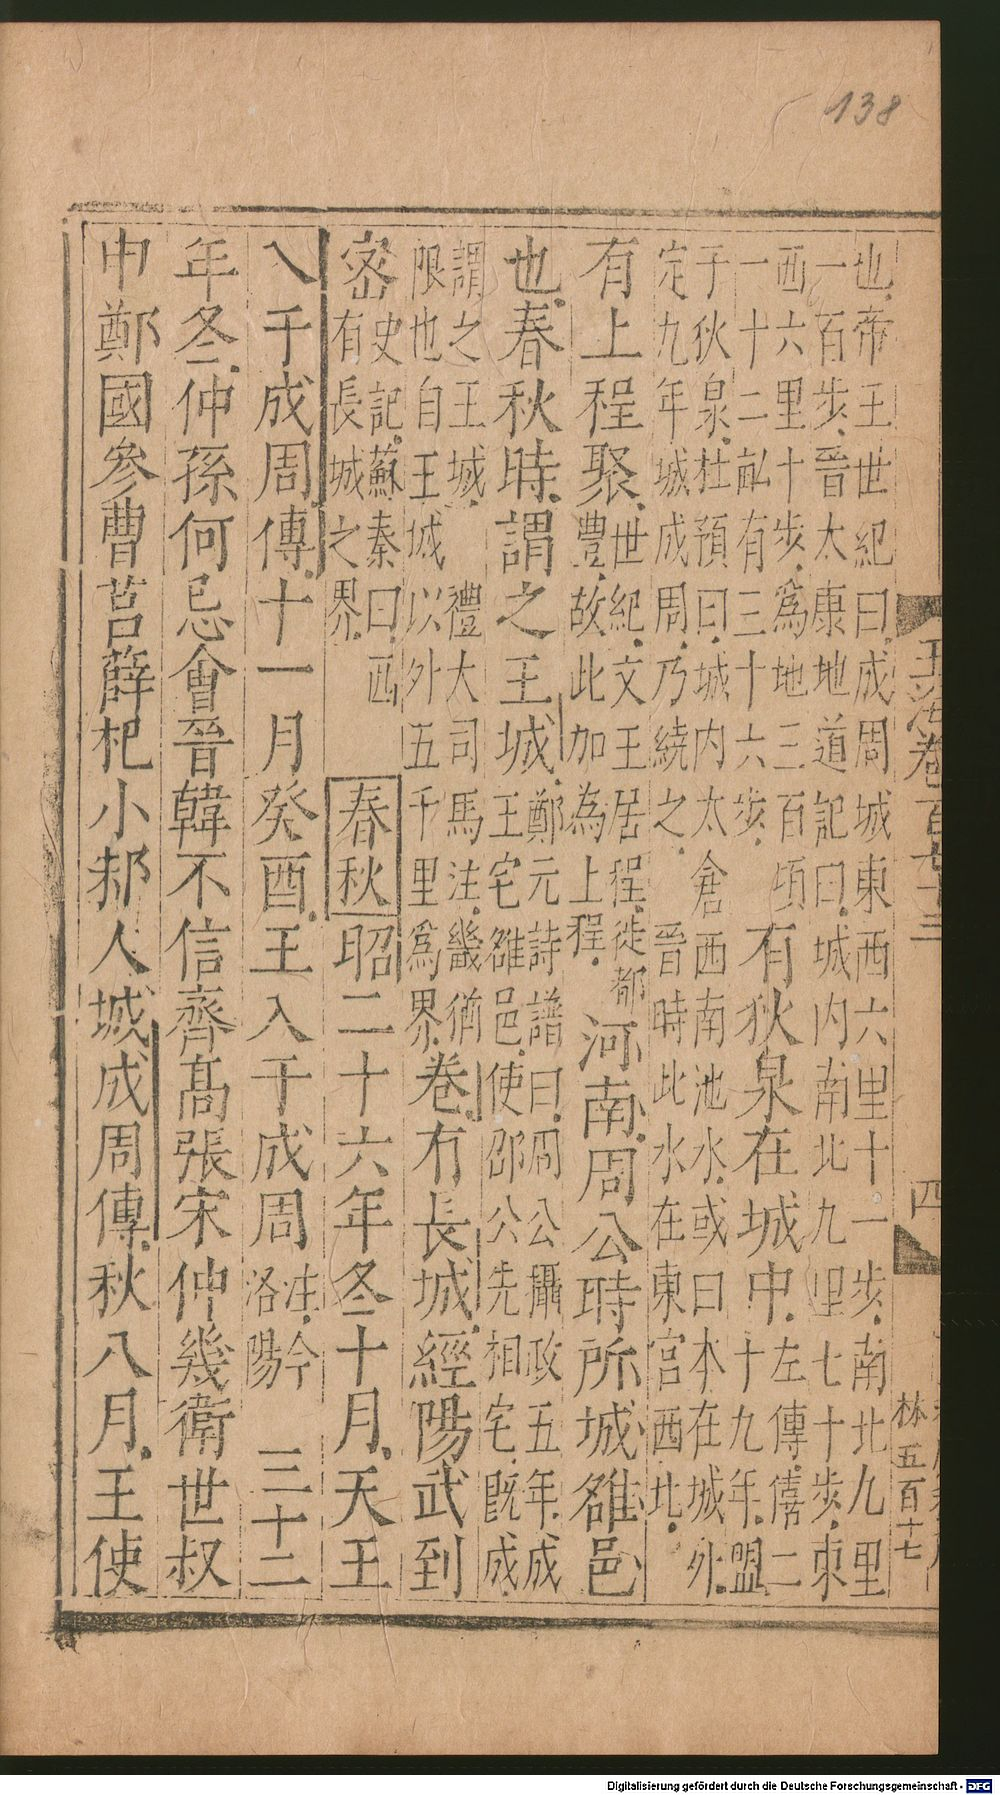 138
玉海卷百七十三
四
林五百十七
也帝王世紀曰成周城東西六里十一步南北九里
一百步晉太康地道記曰城内南北九里七十步東
西六里十步爲地三百頃
一十二畝有三十六步
有狄泉在城中
左傳僖二
十九年盟
于狄泉杜預曰城内太倉西南池水或曰本在城外
定九年城成周乃繞之 晉時此水在東宮西北
有上程聚
世紀文王居程徙都
豐故此加為上程
河南周公時所城雒邑
也春秋時謂之王城
鄭元詩譜曰周公攝政五年成
王宅雒邑使邵公先相宅既成
謂之王城 禮大司馬注畿猶
限也自王城以外五千里爲界
卷有長城經陽武到
密
史記蘇秦曰西
有長城之界
春秋昭二十六年冬十月天王
入于成周傳十一月癸酉王入于成周
注今
洛陽
三十二
年冬仲孫何忌會晉韓不信齊高張宋仲幾衛世叔
申鄭國參曹莒薛杞小邾人城成周傳秋八月王使
Digitalisierung gefördert durch die Deutsche Forschungsgemeinschaft - DFG